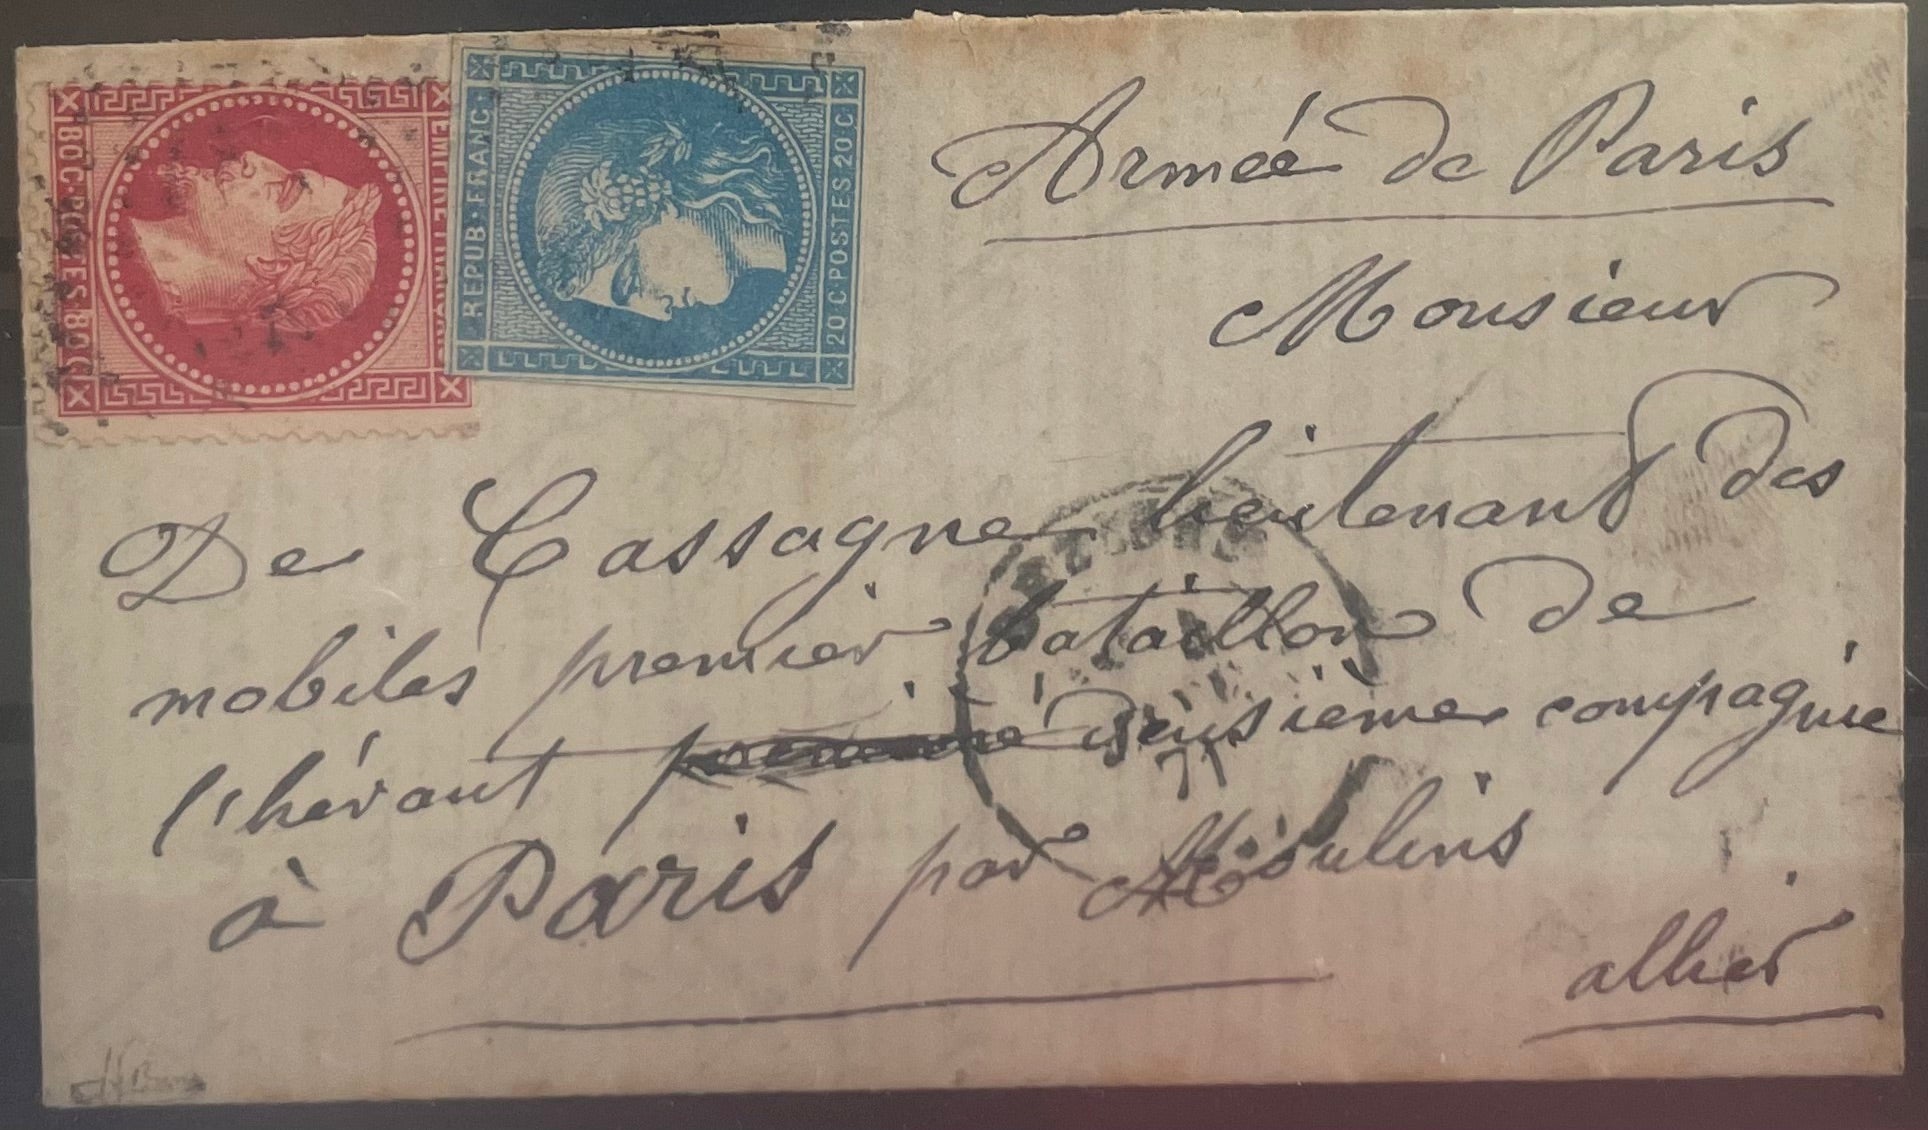 EMPIRE FRANÇAIS
80 C · POSTES · 80 C
REPUB · FRANC ·
20 C · POSTES 20 C
Armée de Paris
Monsieur
De Cassagne lieutenant des
mobiles premier bataillon de
l'hérant deusième compagnie
à Paris par Moulins
allier
71